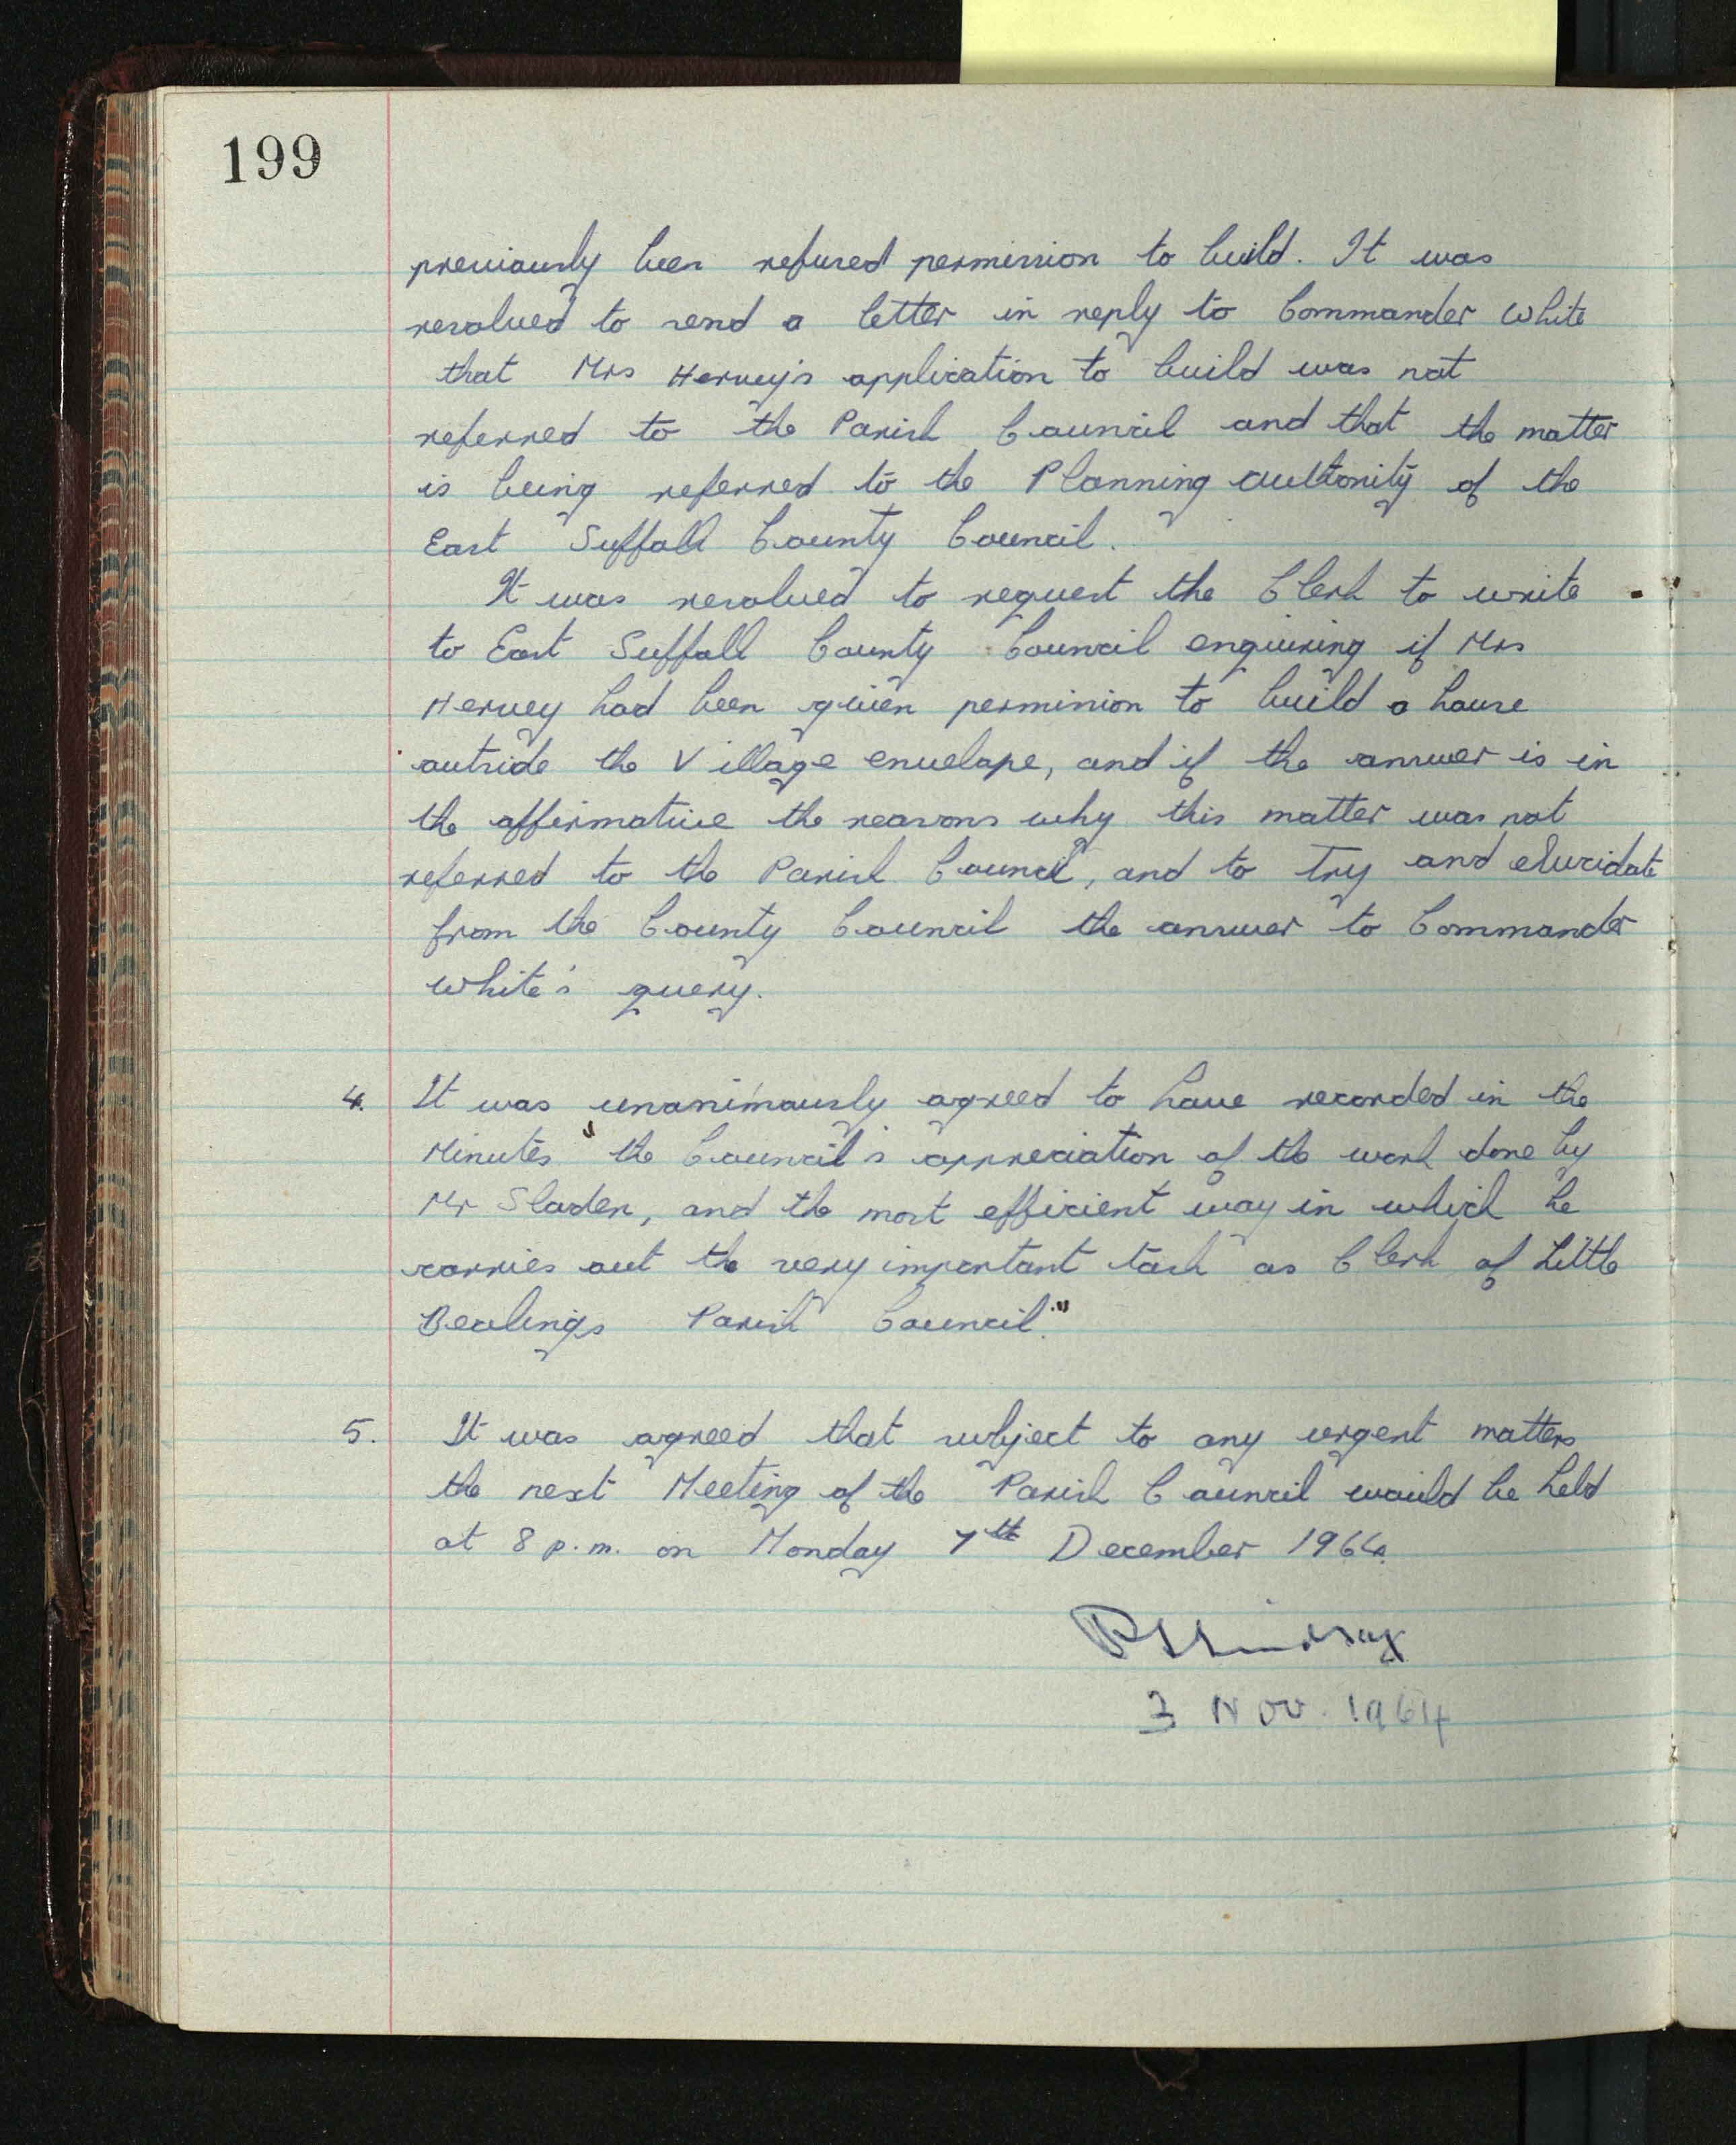 199
previously been refused permission to build. It was
resolved to send a letter in reply to Commander White
that Mrs Hervey's application to build was not
referred to the Parish Council and that the matter
is being referred to the Planning authority of the
East Suffolk County Council.
It was resolved to request the Clerk to write
to East Suffolk County Council enquiring if Mrs
Hervey had been given permission to build a house
outside the Village envelope, and if the answer is in
the affirmative the reasons why this matter was not
referred to the Parish Council, and to try and elucidate
from the County Council the answer to Commander
White's query.
4. It was unanimously agreed to have recorded in the
Minutes "the Council's appreciation of the work done by
Mr Sladen, and the most efficient way in which he
carries out the very important task as Clerk of Little
Bealings Parish Council."
5. It was agreed that subject to any urgent matters
the next Meeting of the Parish Council would be held
at 8 p.m. on Monday 7th December 1964.
3 NOV. 1964